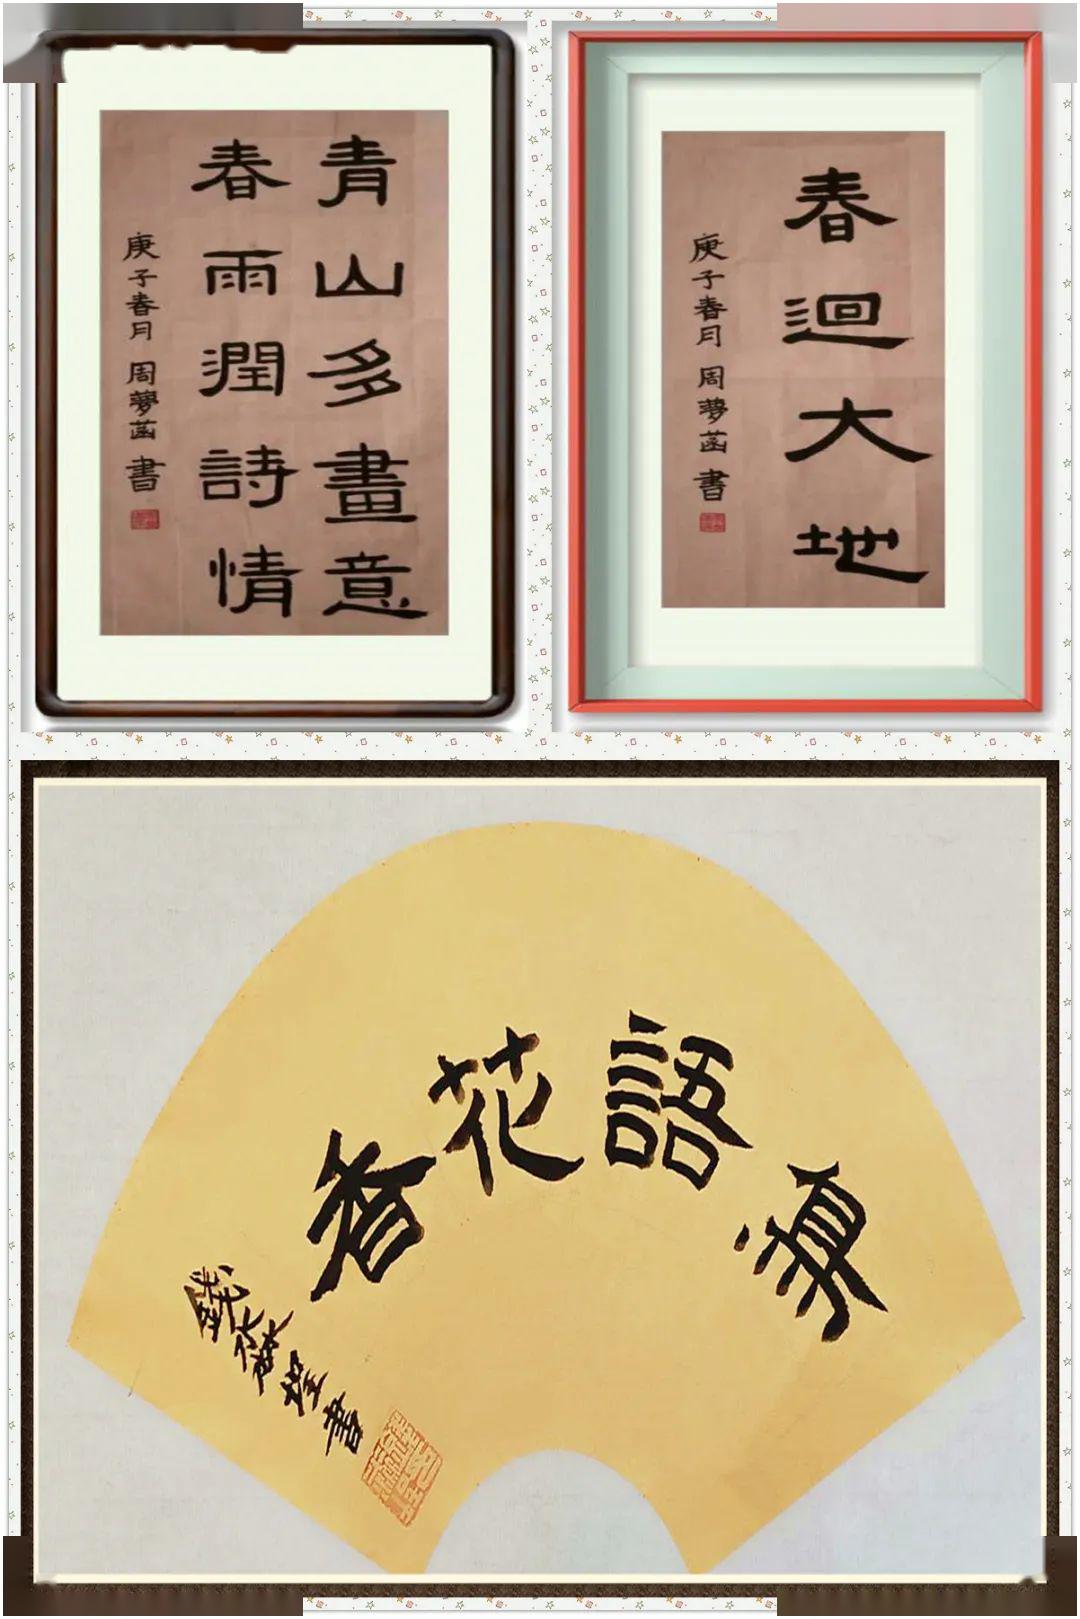 青山多畫意
春雨潤詩情
庚子春月 周夢菡 書
春迴大地
庚子春月 周夢菡 書
鳥語花香
錢 書